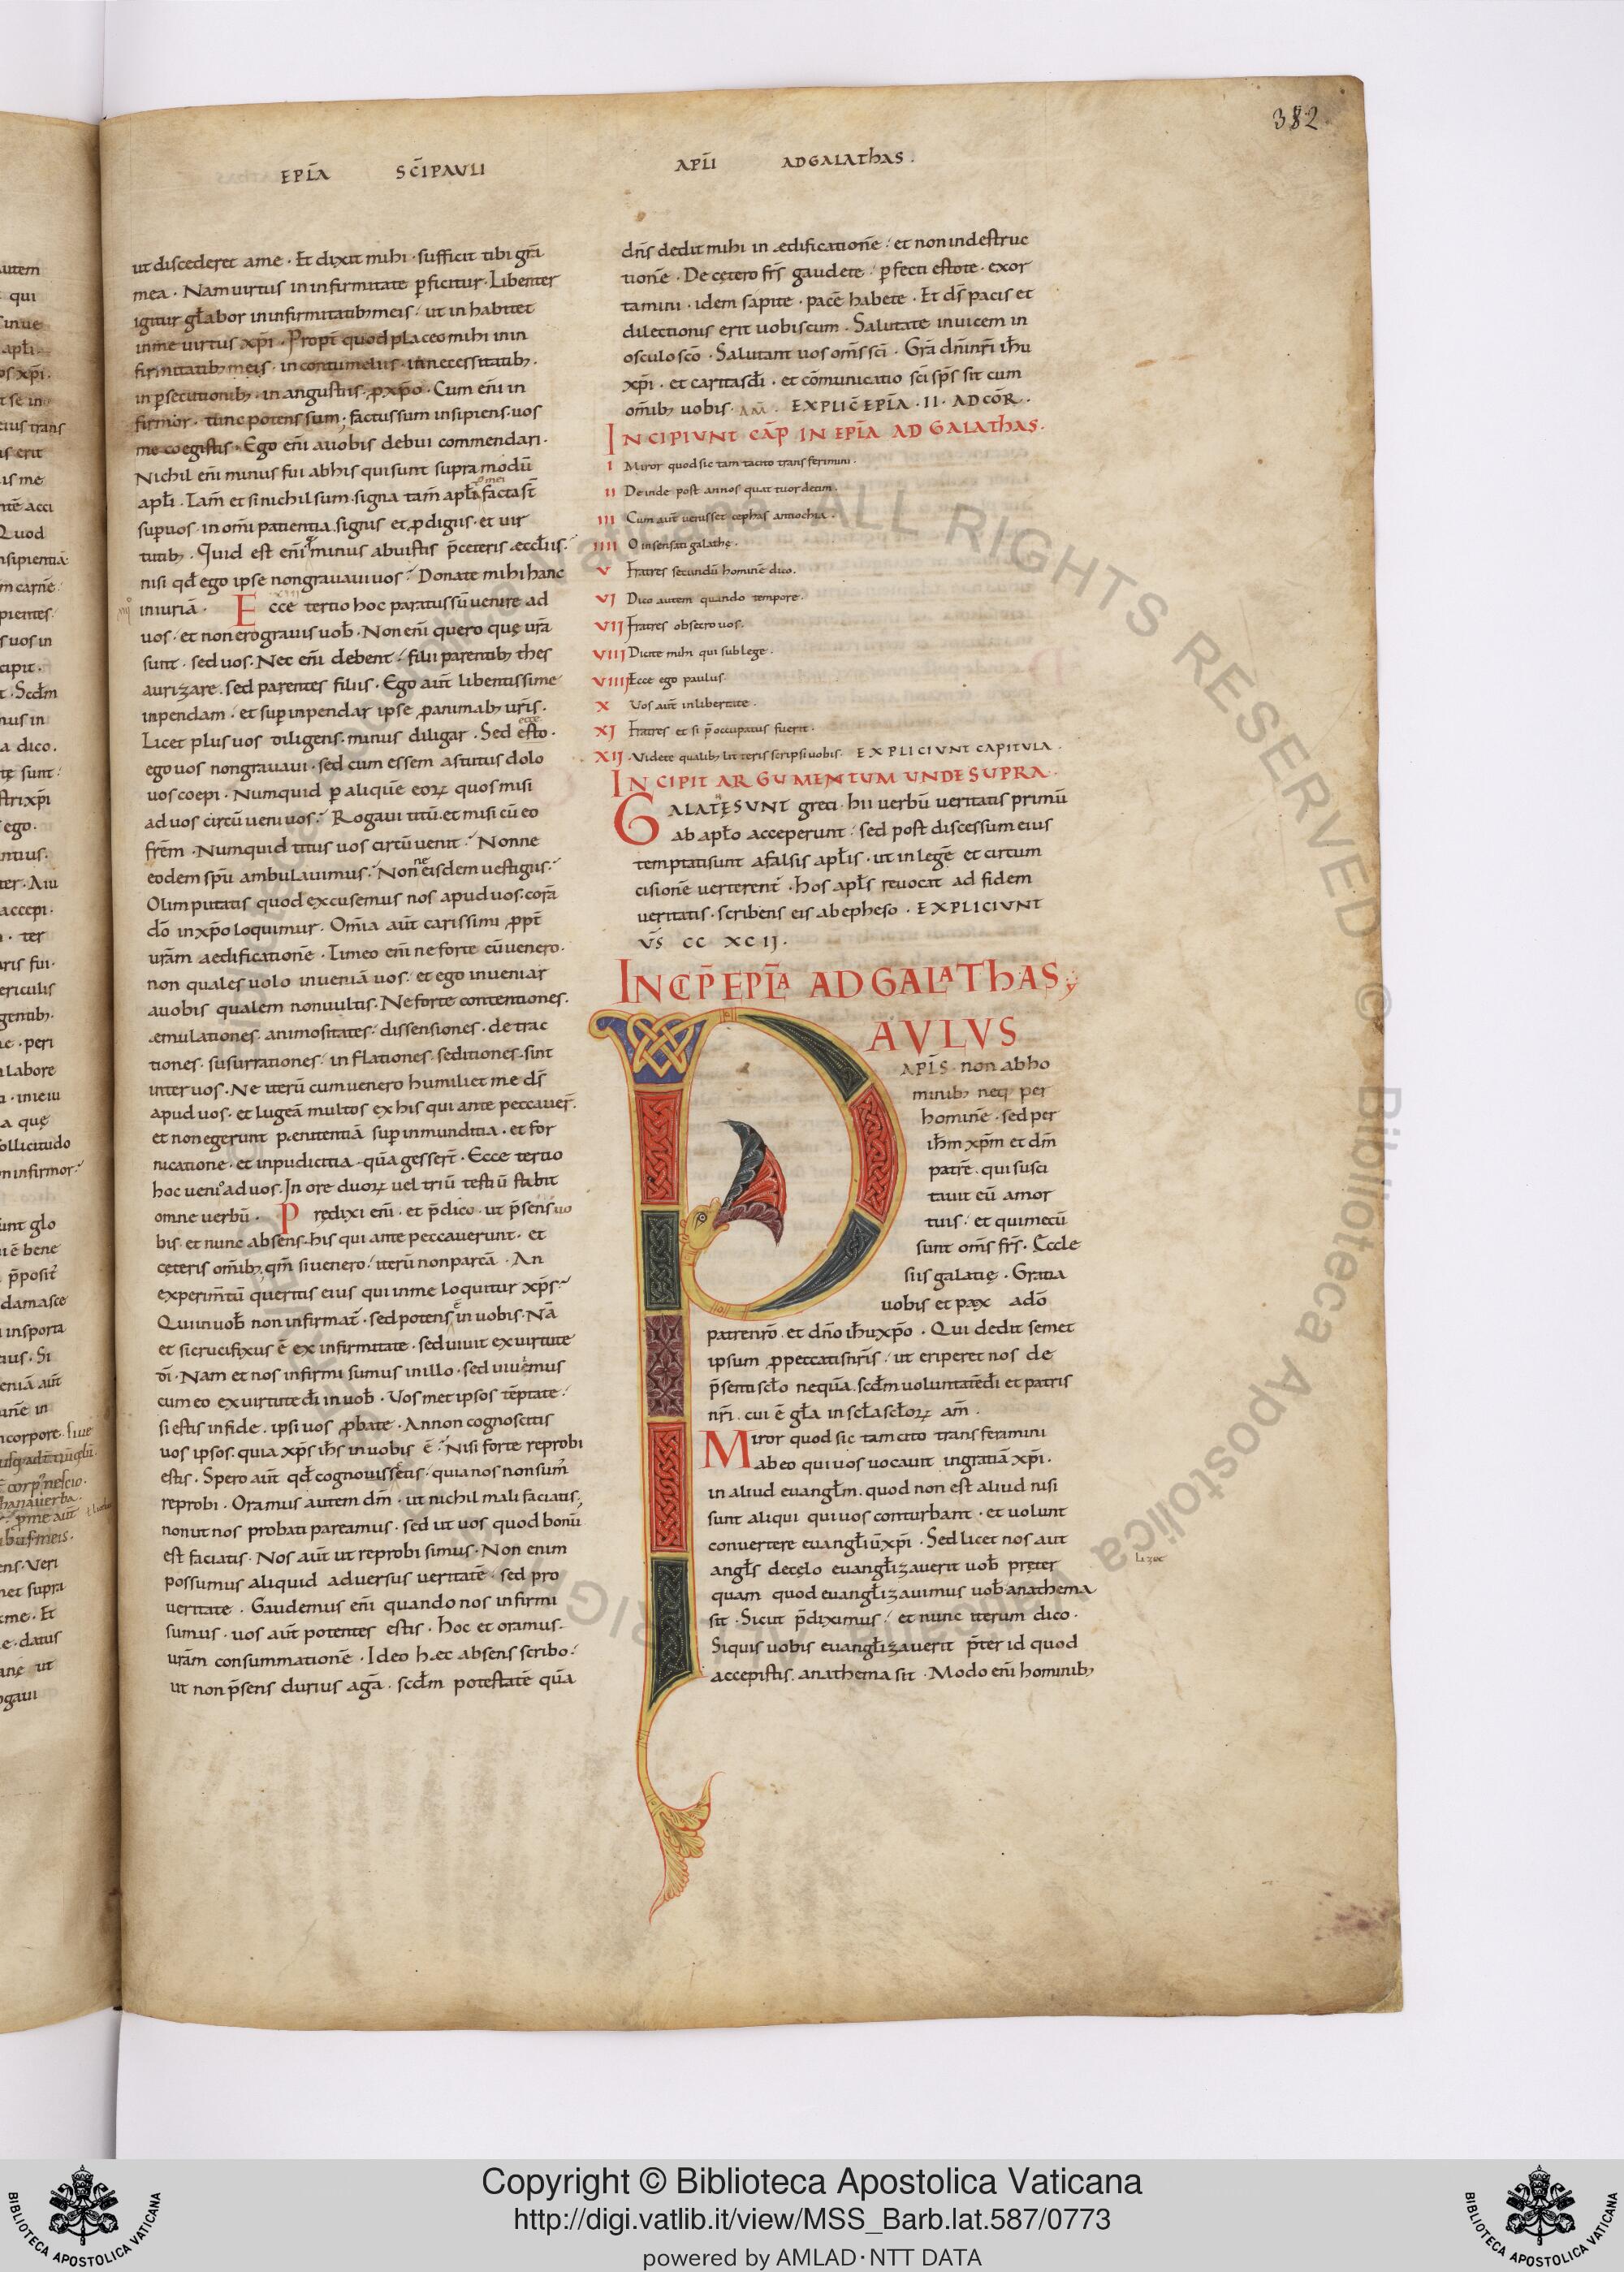 382
EPLA SCI PAVLI APLI AD GALATHAS .
ut discederet a me · Et dixit mihi · sufficit tibi gr̄a
mea · Nam uirtus in infirmitate ꝑficitur · Libenter
igitur gl̄abor in infirmitatibꝫ meis · ut inhabitet
in me uirtus xp̄i · Propt̄ quod placeo mihi in in
firmitatibꝫ meis · in contumeliis · in necessitatibꝫ ·
in ꝑsecutionibꝫ · in angustiis · ꝓ xp̄o · Cum eni̅ in
firmor · tunc potens sum · factus sum insipiens · uos
me coegistis · Ego eni̅ a uobis debui commendari ·
Nichil eni̅ minus fui ab his qui sunt supra modū
apl̄i · Tam̄ et si nichil sum · signa tam̄ apl̄i facta st̄
sup uos · in om̄i patientia · signis et ꝓdigiis · et uir
tutibꝫ · Quid est eni̅ minus a buistis p̄ceteris æccl̄iis ·
nisi qd̄ ego ipse non grauaui uos · Donate mihi hanc
iniuriā · Ecce tertio hoc paratus sū uenire ad
uos · et non ero grauis uob̄ · Non eni̅ quero quę ur̄a
sunt · sed uos · Nec eni̅ debent · filii parentibꝫ thes
aurizare · sed parentes filiis · Ego aut̄ libentissime
inpendam · et sup inpendar ipse ꝓ animabꝫ ur̄is ·
Licet plus uos diligens · minus diligar · Sed esto ·
ego uos non grauaui · sed cum essem astutus dolo
uos coepi · Numquid ꝑ aliquē eoꝝ quos misi
ad uos circū ueni uos · Rogaui titū · et misi cū eo
fr̄em · Numquid titus uos circū uenit · Nonne
eodem sp̄u ambulauimus · Non ne eisdem uestigiis ·
Olim putatis quod excusemus nos apud uos · corā
d̄o in xp̄o loquimur · Om̄ia aut̄ carissimi ꝓpt̄
ur̄am aedificationē · Timeo eni̅ ne forte cū uenero ·
non quales uolo inueniā uos · et ego inueniar
a uobis qualem non uultis · Ne forte contentiones ·
æmulationes · animositates · dissensiones · detrac
tiones · susurrationes · inflationes · seditiones · sint
inter uos · Ne iterū cum uenero humiliet me d̄s
apud uos · et lugeā multos ex his qui ante peccauer̄ ·
et non egerunt pænitentiā sup inmunditia · et for
nicatione · et inpudicitia · quā gesser̄ · Ecce tertio
hoc uenio ad uos · In ore duoꝝ uel triū testiū stabit
omne uerbū · Prędixi eni̅ · et p̄dico · ut p̄sens uo
bis · et nunc absens · his qui ante peccauerunt · et
cęteris om̄ibꝫ · qm̄ si uenero · iterū non parcā · An
experim̄tū queritis eius qui in me loquitur xp̄s ·
Qui in uob̄ non infirmat̄ · sed potens ē in uobis · Nā
et si crucifixus ē ex infirmitate · sed uiuit ex uirtute
d̄i · Nam et nos infirmi sumus in illo · sed uiuemus
cum eo ex uirtute d̄i in uob̄ · Uosmet ipsos tēptate ·
si estis in fide · ipsi uos ꝓbate · An non cognoscitis
uos ipsos · quia xp̄s ih̄s in uobis ē · Nisi forte reprobi
estis · Spero aut̄ qd̄ cognouissetis · quia nos non sum̄
reprobi · Oramus autem dm̄ · ut nichil mali faciatis ·
non ut nos probati pareamus · sed ut uos quod bonū
est faciatis · Nos aut̄ ut reprobi simus · Non enim
possumus aliquid aduersus ueritatē · sed pro
ueritate · Gaudemus eni̅ quando nos infirmi
sumus · uos aut̄ potentes estis · Hoc et oramus ·
ur̄am consummationē · Ideo hæc absens scribo ·
ut non p̄sens durius agā · scd̄m potestatē quā
dn̄s dedit mihi in ædificationē · et non in destruc
tionē · De cętero fr̄s gaudete · ꝑfecti estote · exor
tamini · idem sapite · pacē habete · Et d̄s pacis et
dilectionis erit uobiscum · Salutate inuicem in
osculo sc̄o · Salutant uos om̄s sc̄i · Gr̄a dn̄i nr̄i ih̄u
xp̄i · et caritas d̄i · et cōmunicatio sc̄i sp̄s sit cum
om̄ibꝫ uobis · AM̄ · EXPLIC̄ EPL̄A · II · AD COR̄ ·
INCIPIUNT CAP̄ IN EPL̄A AD GALATHAS ·
I Miror quod sic tam tacito transferimini ·
II Deinde post annos quattuordecim ·
III Cum aut̄ uenisset cephas antiochia ·
IIII O insensati galathę ·
V Fratres secundū hominē dico ·
VI Dico autem quando tempore ·
VII Fratres obsecro uos ·
VIII Dicite mihi qui sub lege ·
VIIII Ecce ego paulus ·
X Uos aut̄ in libertate ·
XI Fratres et si p̄occupatus fuerit ·
XII Videte qualibꝫ litteris scripsi uobis · EXPLICIUNT CAPITULA ·
INCIPIT ARGUMENTUM UNDE SUPRA ·
GALATĘ SUNT greci · hii uerbū ueritatis primū
ab apl̄o acceperunt · sed post discessum eius
temptati sunt a falsis apl̄is · ut in legē et circum
cisionē uerterent̄ · hos apl̄s reuocat ad fidem
ueritatis · scribens eis ab epheso · EXPLICIUNT
V̄S CC XC II ·
INCP̄ EPL̄A AD GALATHAS
PAVLVS
APL̄S · non ab ho
minibꝫ neqꝫ per
hominē · sed per
ih̄m xp̄m et dm̄
patrē · qui susci
tauit eū a mor
tuis · et qui mecū
sunt om̄s fr̄s · Eccle
siis galatię · Gratia
uobis et pax a dō
patre nr̄o · et dn̄o ih̄u xp̄o · Qui dedit semet
ipsum ꝓ peccatis nr̄is · ut eriperet nos de
p̄senti sc̄lo nequā · scd̄m uoluntatē d̄i et patris
nr̄i · cui ē gl̄a in sc̄la sc̄loꝝ am̄ ·
Miror quod sic tam cito transferimini
ab eo qui uos uocauit in gratiā xp̄i ·
in aliud euangl̄m · quod non est aliud nisi
sunt aliqui qui uos conturbant · et uolunt
conuertere euangl̄iū xp̄i · Sed licet nos aut
angl̄s de cęlo euangl̄izauerit uob̄ pręter
quam quod euangl̄izauimus uob̄ anathema
sit · Sicut p̄diximus · et nunc iterum dico ·
Si quis uobis euangl̄izauerit p̄ter id quod
accepistis · anathema sit · Modo eni̅ hominibꝫ
Copyright © Biblioteca Apostolica Vaticana
http://digi.vatlib.it/view/MSS_Barb.lat.587/0773
powered by AMLAD·NTT DATA
BIBLIOTECA APOSTOLICA VATICANA
BIBLIOTECA APOSTOLICA VATICANA